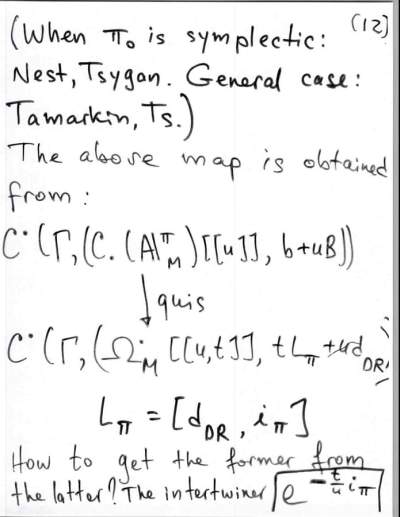 (12)
(When π₀ is symplectic:
Nest, Tsygan. General case:
Tamarkin, Ts.)
The above map is obtained
from:
C˙(Γ, (C.(𝔸^π_M)[[u]], b+uB))
↓ quis
C˙(Γ, (Ω˙_M [[u,t]], tL_π + ud_DR))
L_π = [d_DR, i_π]
How to get the former from
the latter? The intertwiner e^{-t/u i_π}